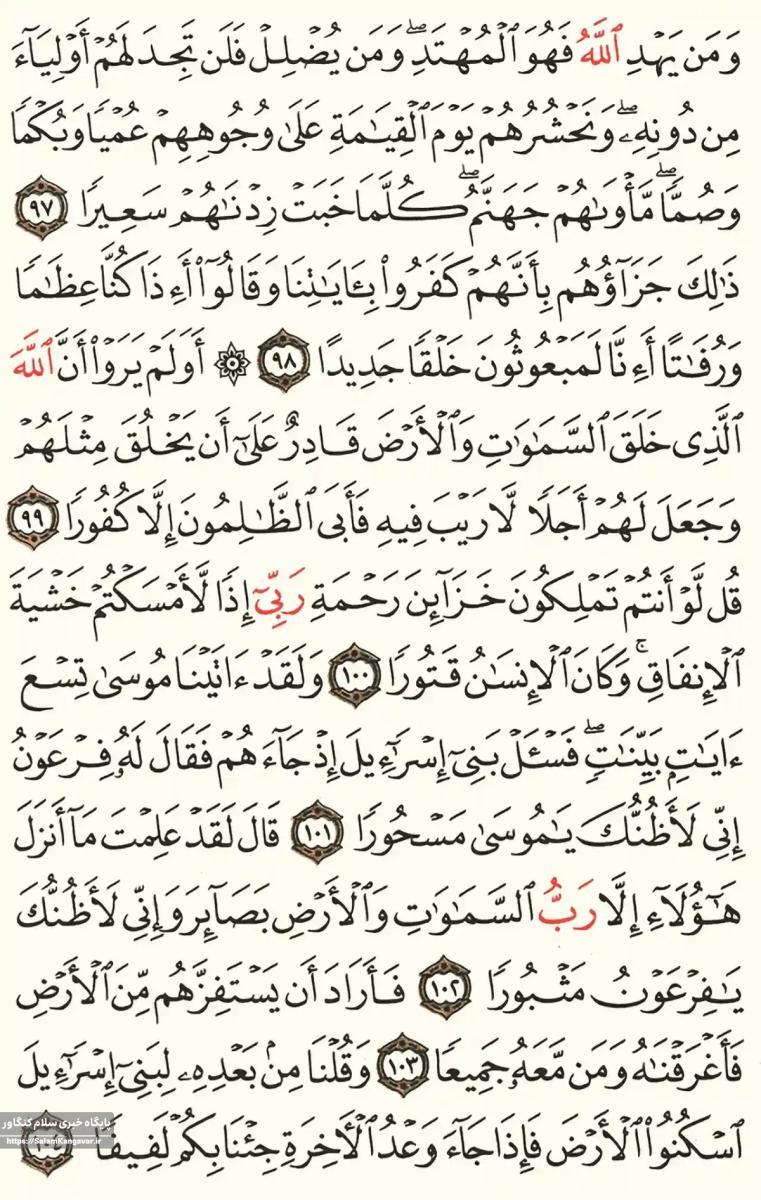 وَمَن يَهْدِ ٱللَّهُ فَهُوَ ٱلْمُهْتَدِۖ وَمَن يُضْلِلْ فَلَن تَجِدَ لَهُمْ أَوْلِيَآءَ
مِن دُونِهِۦۖ وَنَحْشُرُهُمْ يَوْمَ ٱلْقِيَـٰمَةِ عَلَىٰ وُجُوهِهِمْ عُمْيًا وَبُكْمًا
وَصُمًّاۖ مَّأْوَىٰهُمْ جَهَنَّمُۖ كُلَّمَا خَبَتْ زِدْنَـٰهُمْ سَعِيرًا ٩٧
ذَٰلِكَ جَزَآؤُهُم بِأَنَّهُمْ كَفَرُوا۟ بِـَٔايَـٰتِنَا وَقَالُوٓا۟ أَءِذَا كُنَّا عِظَـٰمًا
وَرُفَـٰتًا أَءِنَّا لَمَبْعُوثُونَ خَلْقًا جَدِيدًا ٩٨ ۞ أَوَلَمْ يَرَوْا۟ أَنَّ ٱللَّهَ
ٱلَّذِى خَلَقَ ٱلسَّمَـٰوَٰتِ وَٱلْأَرْضَ قَادِرٌ عَلَىٰٓ أَن يَخْلُقَ مِثْلَهُمْ
وَجَعَلَ لَهُمْ أَجَلًا لَّا رَيْبَ فِيهِ فَأَبَى ٱلظَّـٰلِمُونَ إِلَّا كُفُورًا ٩٩
قُل لَّوْ أَنتُمْ تَمْلِكُونَ خَزَآئِنَ رَحْمَةِ رَبِّىٓ إِذًا لَّأَمْسَكْتُمْ خَشْيَةَ
ٱلْإِنفَاقِۚ وَكَانَ ٱلْإِنسَـٰنُ قَتُورًا ١٠٠ وَلَقَدْ ءَاتَيْنَا مُوسَىٰ تِسْعَ
ءَايَـٰتٍۭ بَيِّنَـٰتٍۖ فَسْـَٔلْ بَنِىٓ إِسْرَٰٓءِيلَ إِذْ جَآءَهُمْ فَقَالَ لَهُۥ فِرْعَوْنُ
إِنِّى لَأَظُنُّكَ يَـٰمُوسَىٰ مَسْحُورًا ١٠١ قَالَ لَقَدْ عَلِمْتَ مَآ أَنزَلَ
هَـٰٓؤُلَآءِ إِلَّا رَبُّ ٱلسَّمَـٰوَٰتِ وَٱلْأَرْضِ بَصَآئِرَ وَإِنِّى لَأَظُنُّكَ
يَـٰفِرْعَوْنُ مَثْبُورًا ١٠٢ فَأَرَادَ أَن يَسْتَفِزَّهُم مِّنَ ٱلْأَرْضِ
فَأَغْرَقْنَـٰهُ وَمَن مَّعَهُۥ جَمِيعًا ١٠٣ وَقُلْنَا مِنۢ بَعْدِهِۦ لِبَنِىٓ إِسْرَٰٓءِيلَ
ٱسْكُنُوا۟ ٱلْأَرْضَ فَإِذَا جَآءَ وَعْدُ ٱلْـَٔاخِرَةِ جِئْنَا بِكُمْ لَفِيفًا
پایگاه خبری سلام کنگاور
https://SalamKangavar.ir